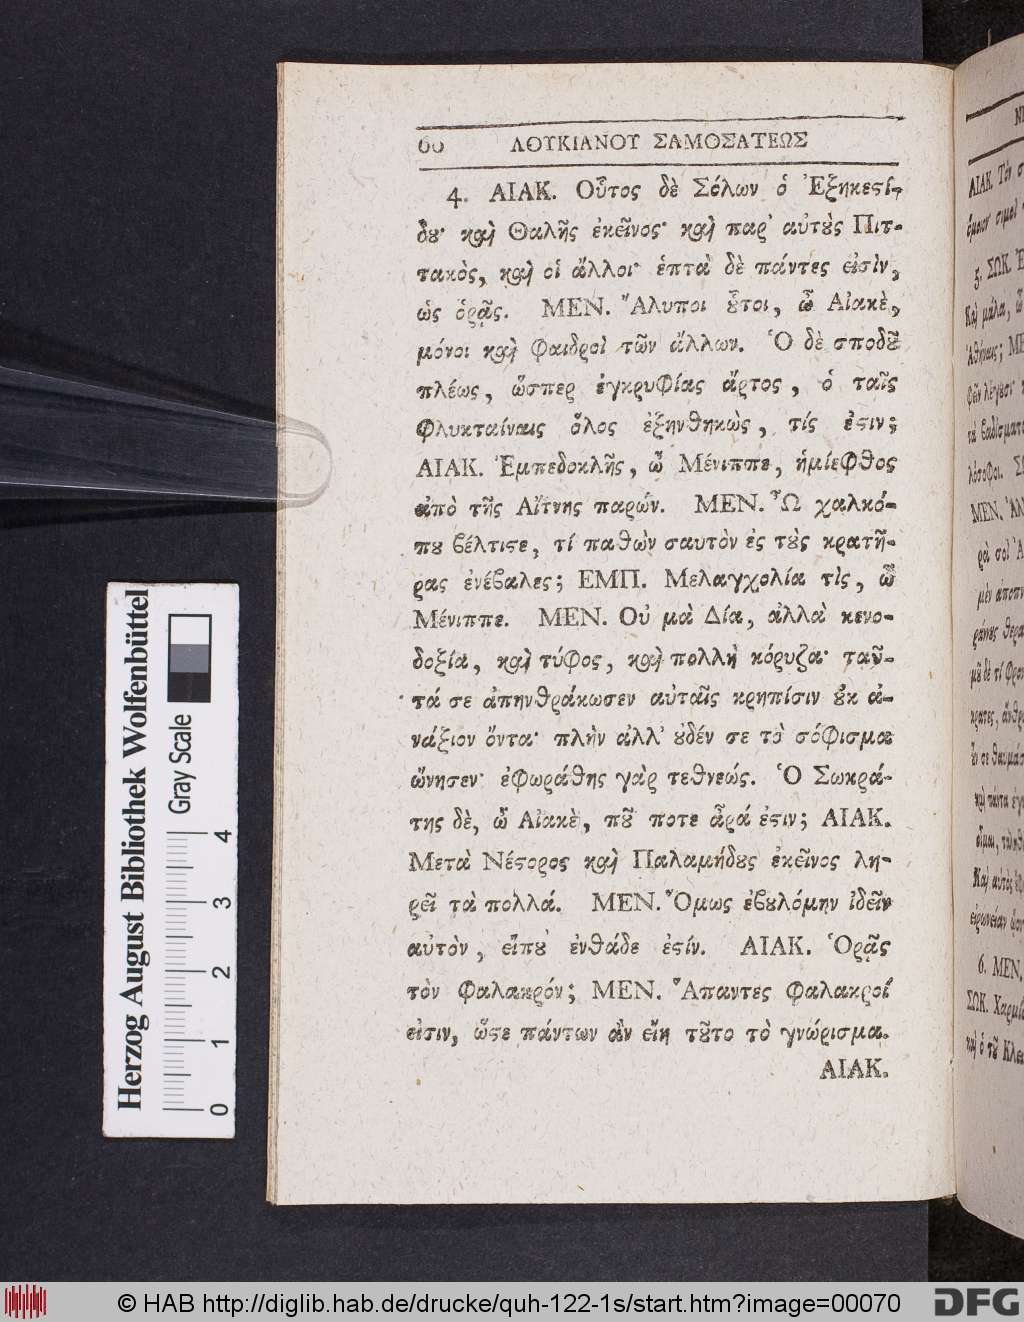 60 ΛΟΥΚΙΑΝΟΥ ΣΑΜΟΣΑΤΕΩΣ
4. ΑΙΑΚ. Οὗτος δὲ Σόλων ὁ Ἐξηκεϛί-
δȣ· καὶ Θαλῆς ἐκεῖνος· καὶ παρ' αὐτȣ̀ς Πιτ-
τακὸς, καὶ οἱ ἄλλοι· ἑπτὰ δὲ πάντες εἰσὶν,
ὡς ὁρᾷς. ΜΕΝ. Ἄλυποι ȣ̓͂τοι, ὦ Αἰακὲ,
μόνοι καὶ φαιδροὶ τῶν ἄλλων. Ὁ δὲ σποδȣ͂
πλέως, ὥσπερ ἐγκρυφίας ἄρτος, ὁ ταῖς
φλυκταίναις ὅλος ἐξηνθηκὼς, τίς ἐϛιν;
ΑΙΑΚ. Ἐμπεδοκλῆς, ὦ Μένιππε, ἡμίεφθος
ἀπὸ τῆς Αἴτνης παρών. ΜΕΝ. Ὦ χαλκό-
πȣ βέλτιϛε, τί παθὼν σαυτὸν ἐς τȣ̀ς κρατῆ-
ρας ἐνέβαλες; ΕΜΠ. Μελαγχολία τὶς, ὦ
Μένιππε. ΜΕΝ. Οὐ μὰ Δία, ἀλλὰ κενο-
δοξία, καὶ τύφος, καὶ πολλὴ κόρυζα· ταῦ-
τά σε ἀπηνθράκωσεν αὐταῖς κρηπίσιν ȣ̓κ ἀ-
νάξιον ὄντα· πλὴν ἀλλ' ȣ̓δέν σε τὸ σόφισμα
ὤνησεν· ἐφωράθης γὰρ τεθνεώς. Ὁ Σωκρά-
της δὲ, ὦ Αἰακὲ, πȣ͂ ποτε ἆρά ἐϛιν; ΑΙΑΚ.
Μετὰ Νέϛορος καὶ Παλαμήδȣς ἐκεῖνος λη-
ρεῖ τὰ πολλά. ΜΕΝ. Ὅμως ἐβȣλόμην ἰδεῖν
αὐτὸν, εἴπȣ ἐνθάδε ἐϛίν. ΑΙΑΚ. Ὁρᾷς
τὸν φαλακρόν; ΜΕΝ. Ἅπαντες φαλακροί
εἰσιν, ὥϛε πάντων ἂν εἴη τȣ͂το τὸ γνώρισμα.
ΑΙΑΚ.
Herzog August Bibliothek Wolfenbüttel
Gray Scale
0 1 2 3 4
© HAB http://diglib.hab.de/drucke/quh-122-1s/start.htm?image=00070
DFG